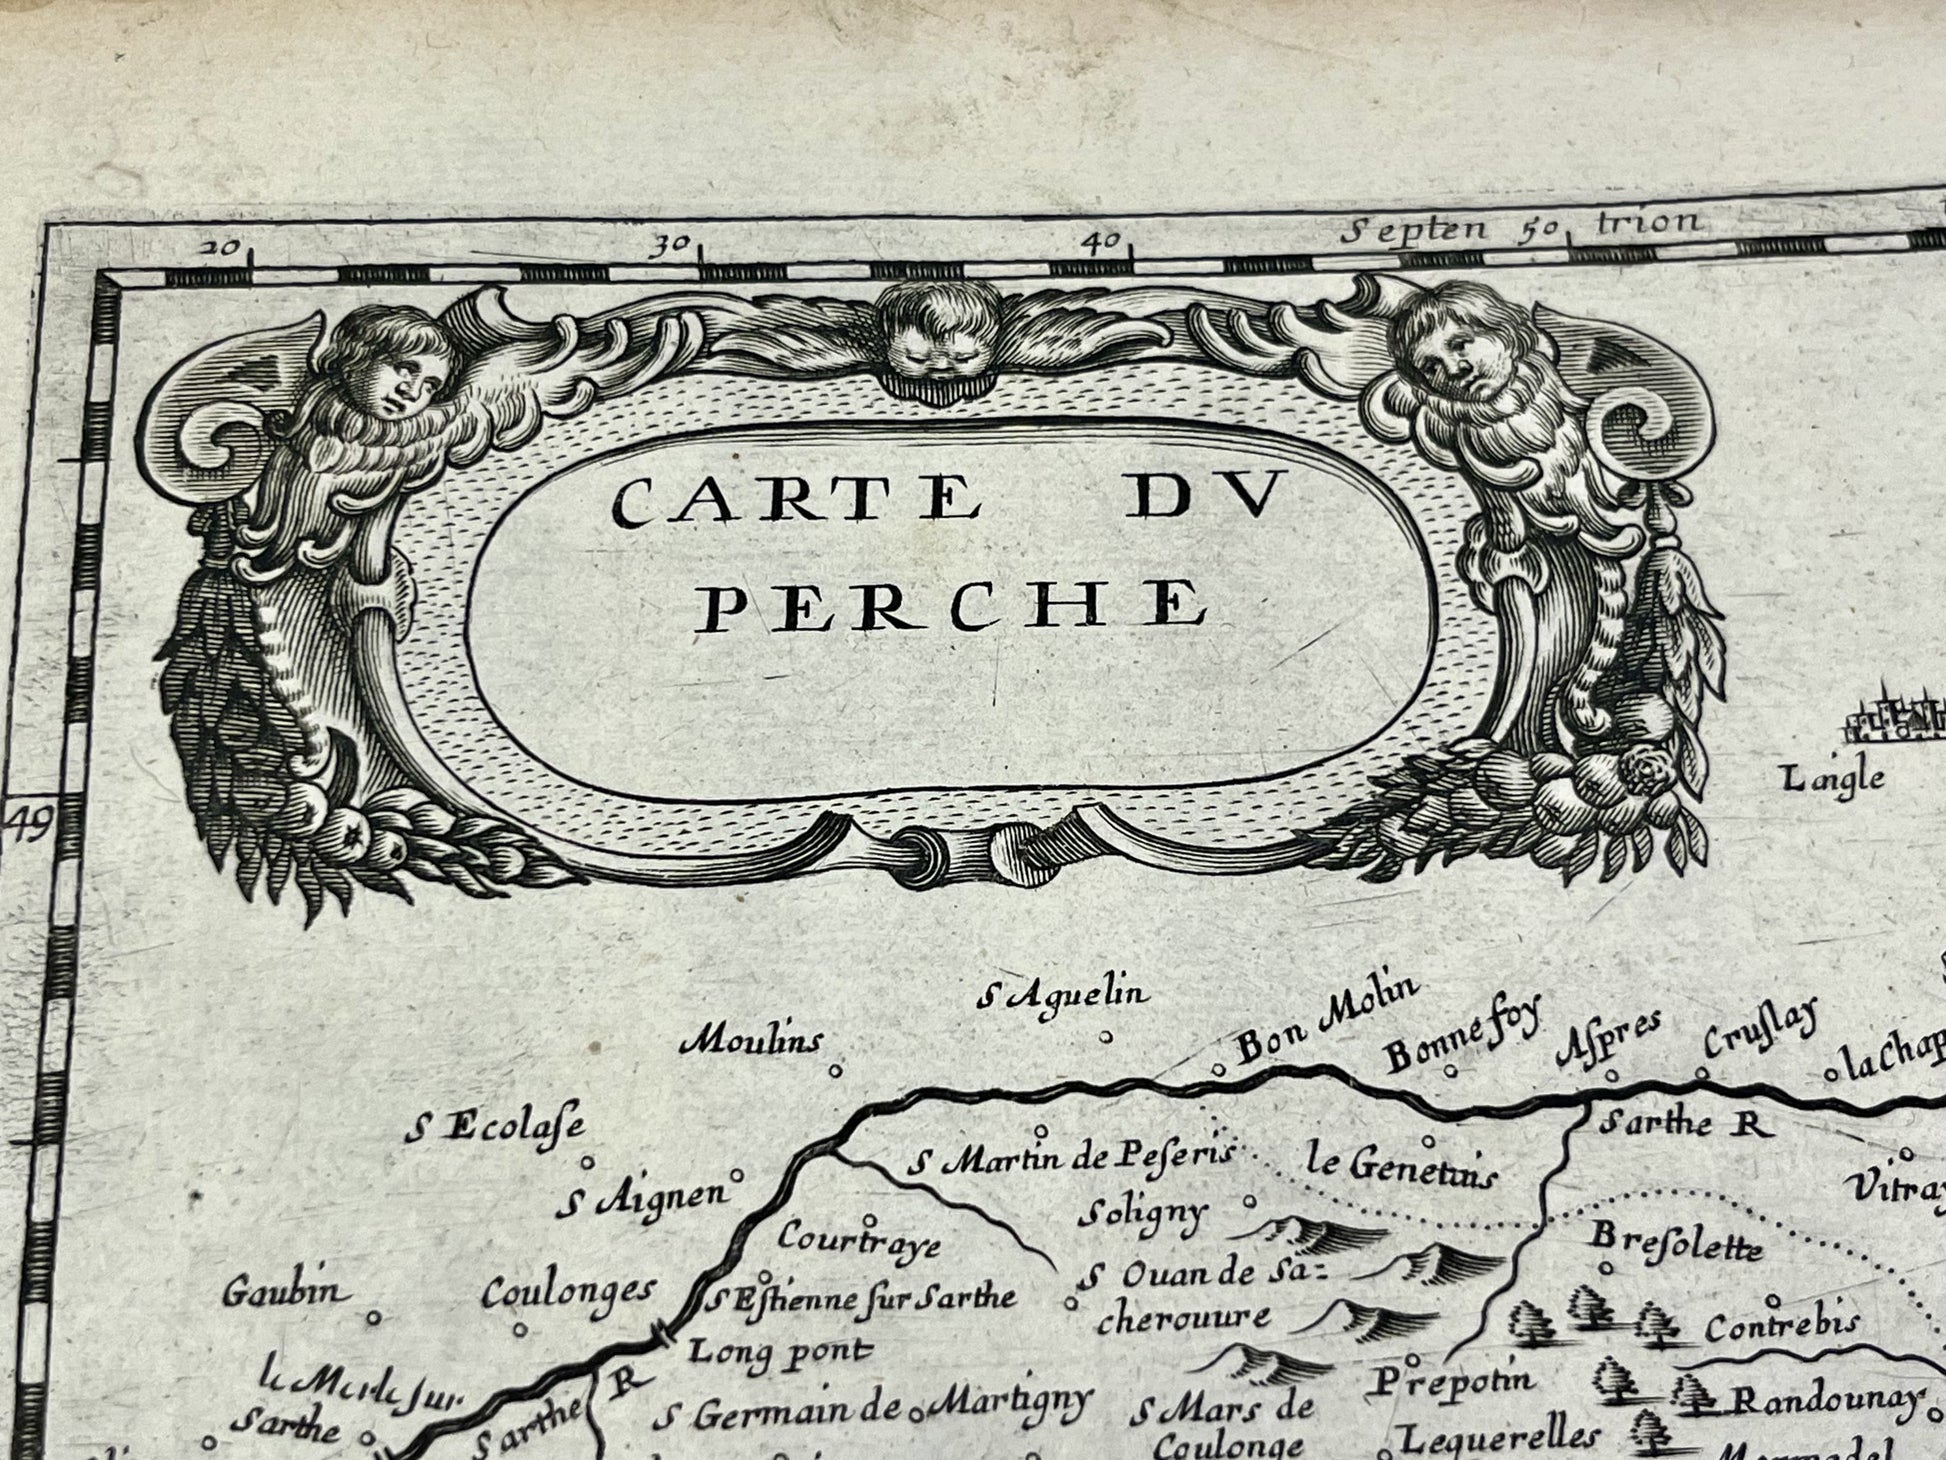 20 30 40 Septen 50 trion
CARTE DV
PERCHE
Laigle
49
S Aguelin
Moulins
Bon Molin
Bonnefoy
Aſpres
Cruſlay
la Chap
S Ecolaſe
Sarthe R
S Martin de Peſeris
le Genetuis
S Aignen
Vitray
Soligny
Courtraye
Breſolette
S Ouan de Sa=
cherouure
Gaubin
Coulonges
S Eſtienne ſur Sarthe
Contrebis
Long pont
le Merle ſur
Sarthe
Sarthe R
Prepotin
S Germain de Martigny
S Mars de
Coulonge
Randounay
Lequerelles